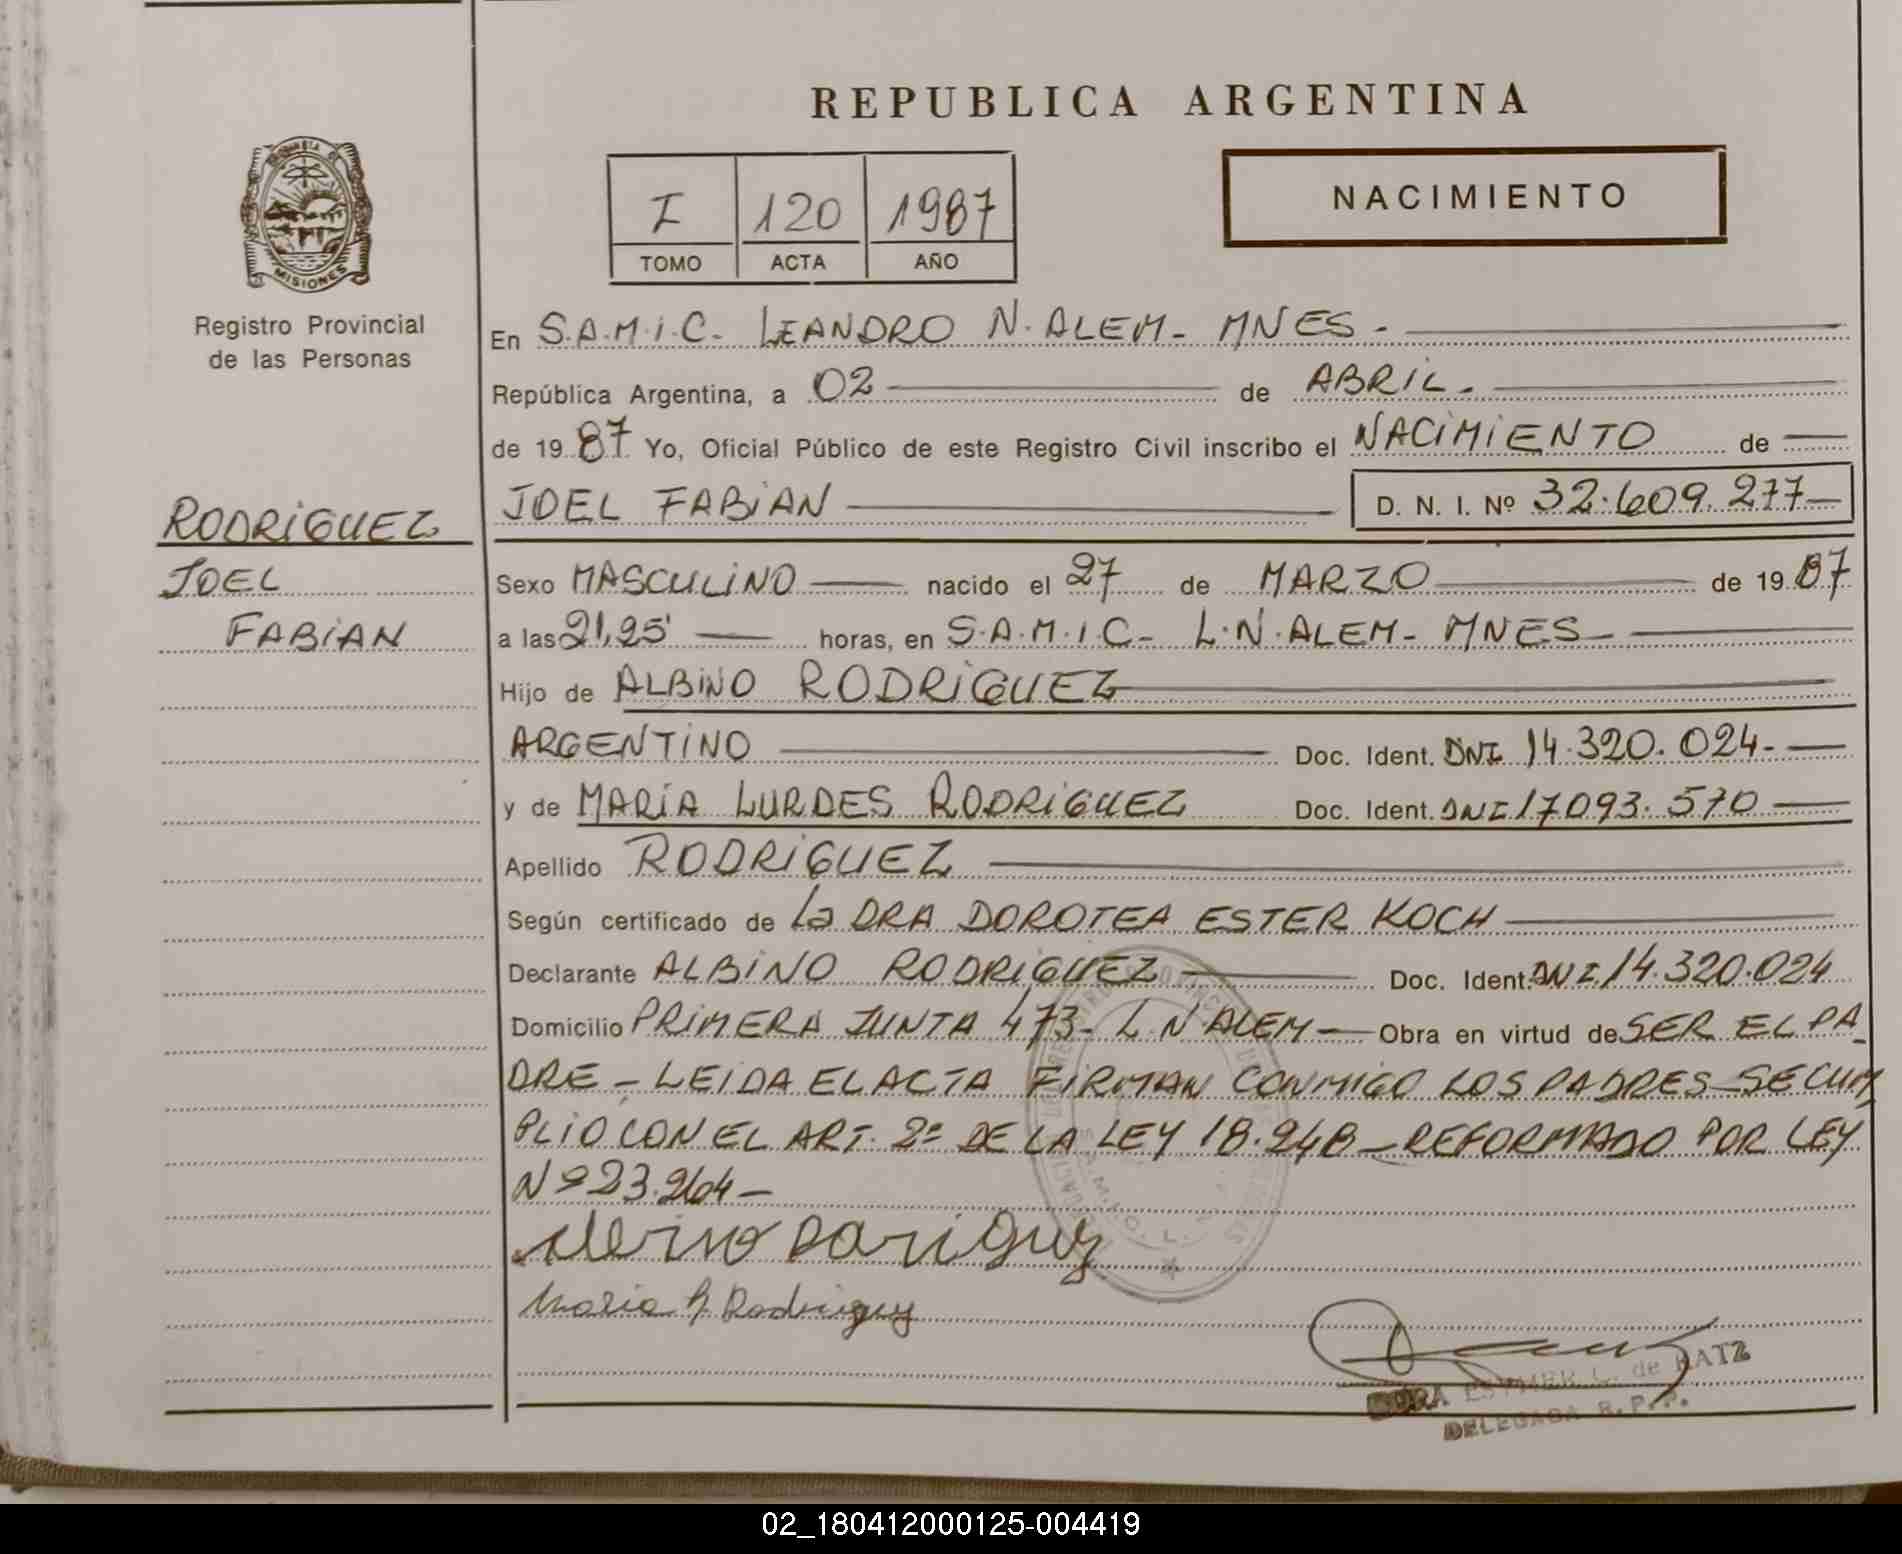 REPUBLICA ARGENTINA
I 120 1987
TOMO ACTA AÑO
NACIMIENTO
MISIONES
Registro Provincial
de las Personas
RODRIGUEZ
JOEL
FABIAN
En S.A.M.I.C. LEANDRO N. ALEM - MNES.
República Argentina, a 02 de ABRIL.
de 19 87 Yo, Oficial Público de este Registro Civil inscribo el NACIMIENTO de
JOEL FABIAN D. N. I. Nº 32.609.277
Sexo MASCULINO nacido el 27 de MARZO de 19 87
a las 21,25' horas, en S.A.M.I.C. L.N. ALEM - MNES
Hijo de ALBINO RODRIGUEZ
ARGENTINO Doc. Ident. DNI 14.320.024.
y de MARIA LURDES RODRIGUEZ Doc. Ident. DNI 17093.570
Apellido RODRIGUEZ
Según certificado de La DRA DOROTEA ESTER KOCH
Declarante ALBINO RODRIGUEZ Doc. Ident. DNI 14.320.024
Domicilio PRIMERA JUNTA 473 - L.N ALEM - Obra en virtud de SER EL PA-
DRE - LEIDA EL ACTA FIRMAN CONMIGO LOS PADRES - SE CUM
PLIO CON EL ART. 2º DE LA LEY 18.248 - REFORMADO POR LEY
Nº 23.264 -
Maria L Rodriguez
de KATZ
DELEGADA R.P.P.
02_180412000125-004419